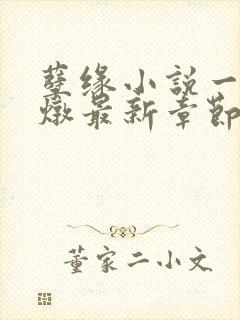 孽缘小说一
燉最新章節
董家二小文